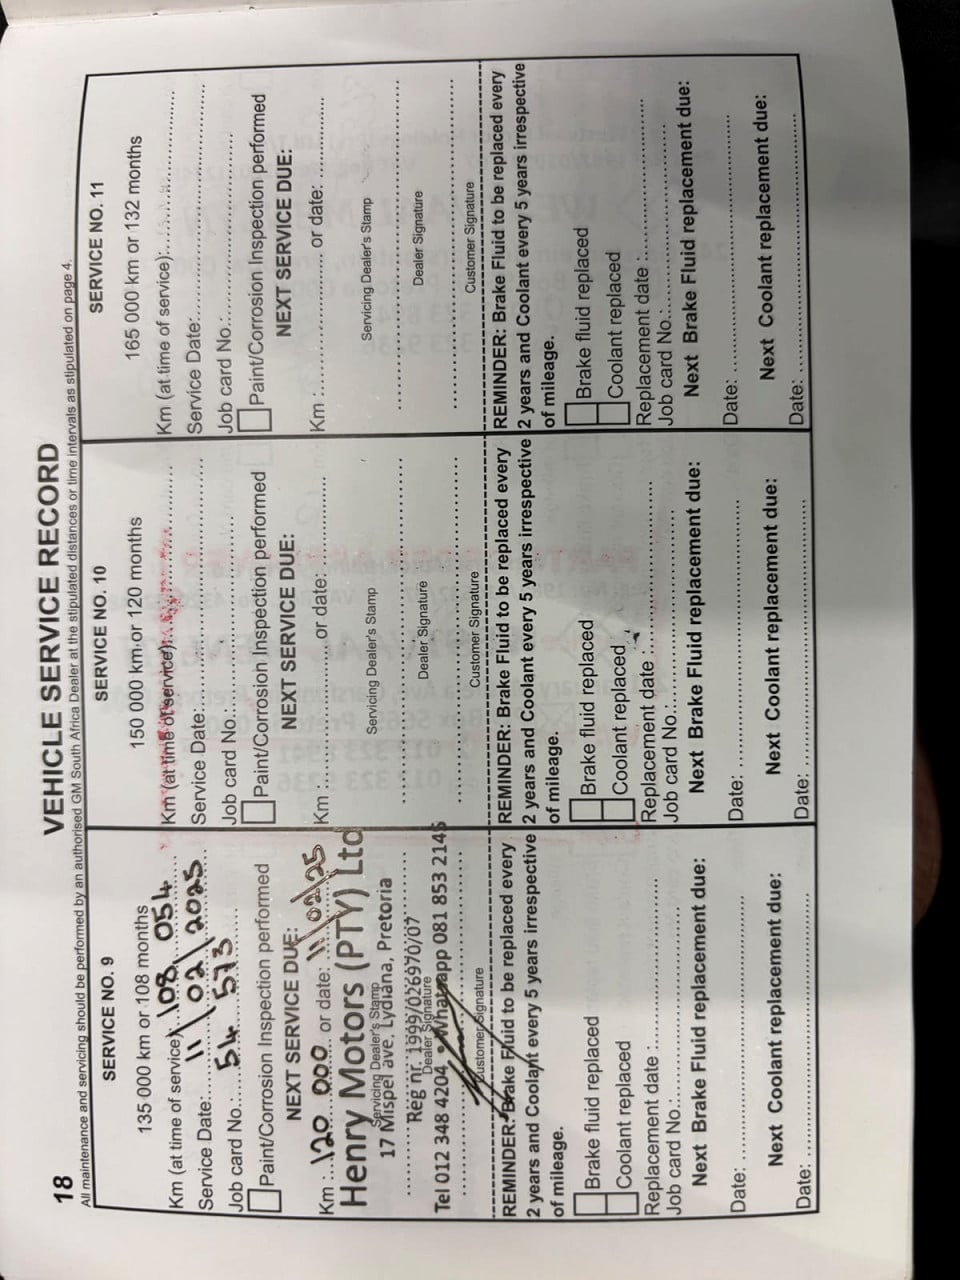 18
VEHICLE SERVICE RECORD
All maintenance and servicing should be performed by an authorised GM South Africa Dealer at the stipulated distances or time intervals as stipulated on page 4.
SERVICE NO. 9
135 000 km or 108 months
Km (at time of service): 108 054
Service Date: 11/02/2025
Job card No.: 54 573
Paint/Corrosion Inspection performed
NEXT SERVICE DUE:
Km : 120 000 or date: 11/02/25
Henry Motors (PTY) Ltd
Servicing Dealer's Stamp
17 Mispel ave. Lydiana, Pretoria
Reg nr. 1999/026970/07
Dealer Signature
Tel 012 348 4204 • Whatsapp 081 853 2145
Customer Signature
REMINDER: Brake Fluid to be replaced every
2 years and Coolant every 5 years irrespective
of mileage.
Brake fluid replaced
Coolant replaced
Replacement date :
Job card No.:
Next Brake Fluid replacement due:
Date:
Next Coolant replacement due:
Date:
SERVICE NO. 10
150 000 km or 120 months
Km (at time of service):
Service Date:
Job card No.:
Paint/Corrosion Inspection performed
NEXT SERVICE DUE:
Km : or date:
Servicing Dealer's Stamp
Dealer Signature
Customer Signature
REMINDER: Brake Fluid to be replaced every
2 years and Coolant every 5 years irrespective
of mileage.
Brake fluid replaced
Coolant replaced
Replacement date :
Job card No.:
Next Brake Fluid replacement due:
Date:
Next Coolant replacement due:
Date:
SERVICE NO. 11
165 000 km or 132 months
Km (at time of service):
Service Date:
Job card No.:
Paint/Corrosion Inspection performed
NEXT SERVICE DUE:
Km : or date:
Servicing Dealer's Stamp
Dealer Signature
Customer Signature
REMINDER: Brake Fluid to be replaced every
2 years and Coolant every 5 years irrespective
of mileage.
Brake fluid replaced
Coolant replaced
Replacement date :
Job card No.:
Next Brake Fluid replacement due:
Date:
Next Coolant replacement due:
Date: